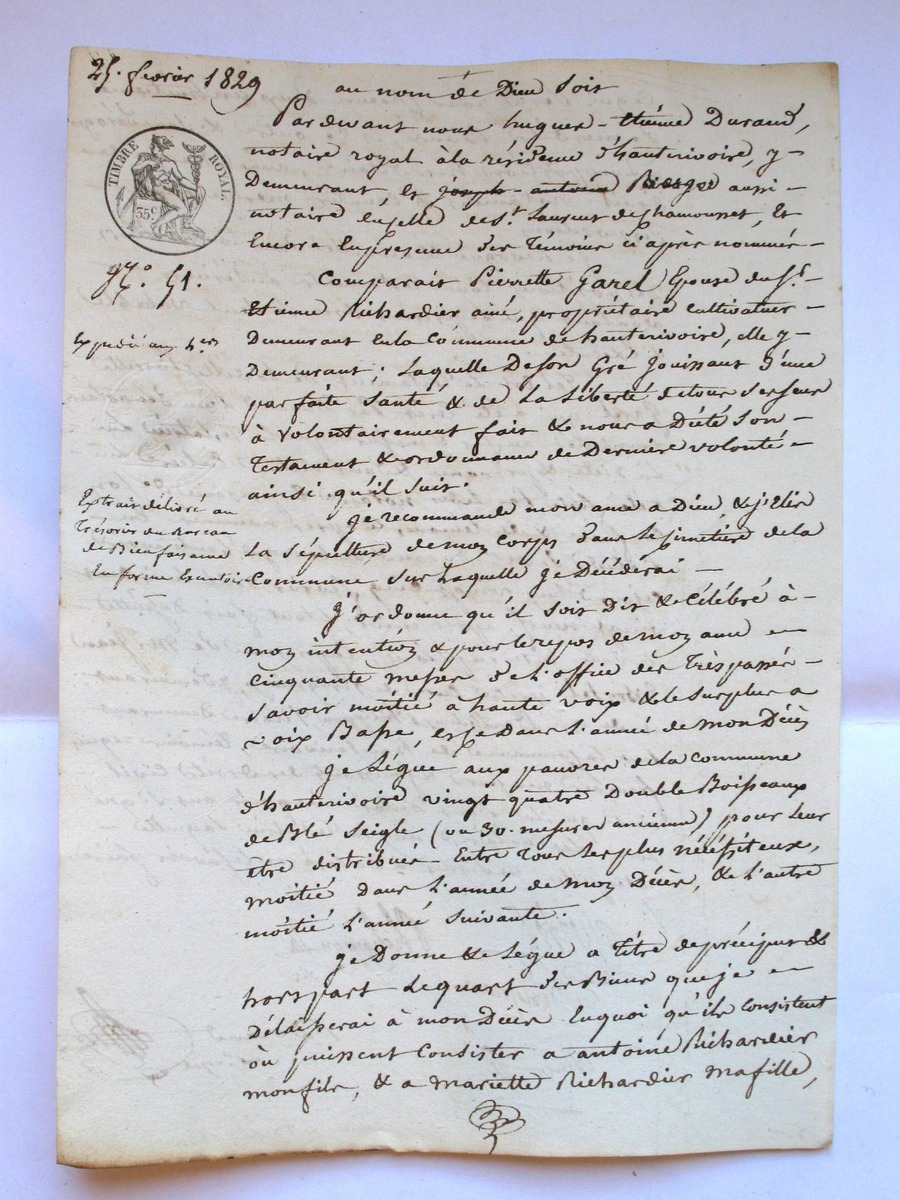 25. fevrier 1829
au nom de Dieu soit
Pardevant nous hugues-Etiénne Durand,
notaire royal à la résidence d'hauterivoire, y
Demeurant, et joseph-antoine aussi
notaire éscelle de St. Laurent de Chamousset, Et
Encore En presence des Témoins ci après nommés
TIMBRE ROYAL
35c
N.° 51.
Comparait Pierrette Garel Epouse du Sr.
Etienne Richardier ainé, propriétaire cultivateur
Demeurant En la Commune de hauterivoire, elle y
Expédié aux
Demeurant; Laquelle De son Gré jouissant d'une
parfaite santé & de La Liberté de tous ses sens
à volontairement fait & nous a Dicté son
Testament & ordonnance de Derniere volonté
ainsi qu'il suit.
Extrait délivré au
Trésorier du Bureau
de Bienfaisance
En forme Exécutoire
je recommande mon ame a Dieu, & j'Elis
La sépulture de mon corps dans le cimetière de la
Commune sur Laquelle je Décéderai
J'ordonne qu'il soit Dit & célébré à
mon intention & pour le repos de mon ame
cinquante messes de L'office des Trépassés
savoir moitié à haute voix & le surplus a
voix Basse, et ce Dans L'année de mon Décès
je Légue aux pauvres de la commune
d'hauterivoire vingt quatre Double Boisseaux
de Blé seigle (ou 30. mesures ancienne) pour Leur
être distribués Entre Tous Les plus nécéssiteux,
moitié dans L'année de mon Décès, & L'autre
moitié L'année suivante.
je Donne & Légue a Titre de préciput &
hors part Le quart des Biens que je
Délaisserai à mon Décès En quoi qu'ils consistent
où puissent Consister a antoine Richardier
mon fils, & a mariette Richardier ma fille,